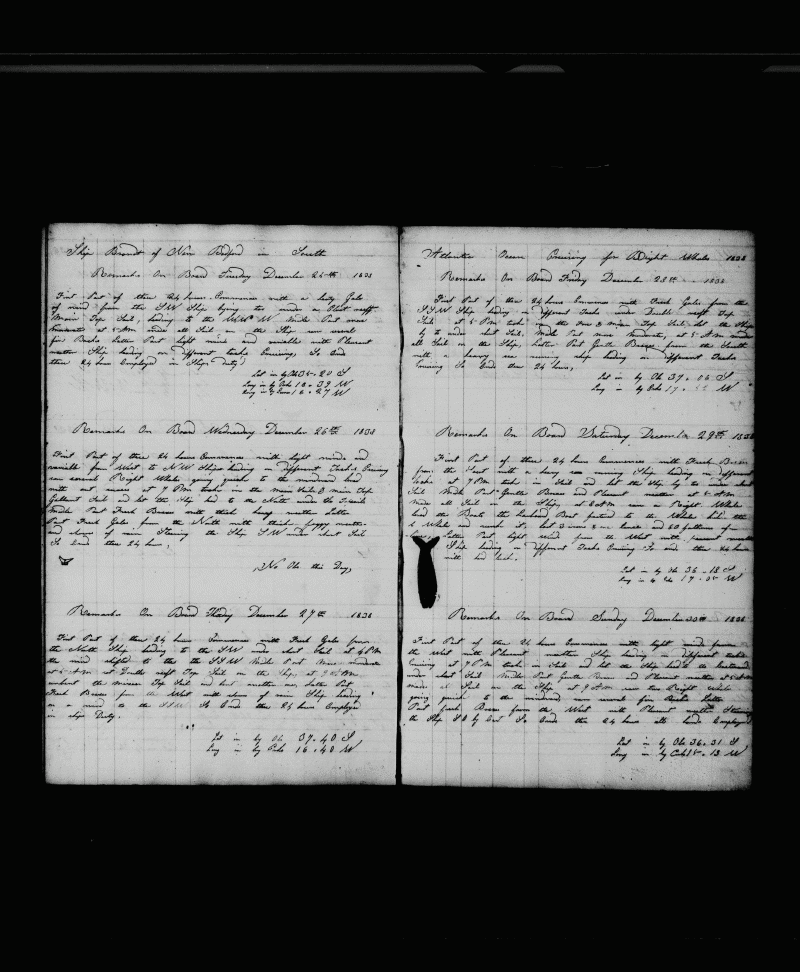 Ship Brandt of New Bedford in South
Remarks On Board Tuesday December 25th 1838
First Part of these 24 hours Commences with a hevy Gale
of wind from the SW Ship lying too under a Close reeft
Main Top Sail, heading to the Middle Part more
moderate at 5 AM made all Sail on the Ship saw several
fin Backs Latter Part light winds and variable with Pleasent
weather Ship heading on different tacks Cruising, So Ends
these 24 hours Employed in Ships duty
Lat in by Ob 38-20 S
Long in by 16-27 W
Remarks On Board Wednesday December 26th 1838
First Part of these 24 hours Commences with light winds and
variable from West to NW Ship heading on different Tacks Cruising
saw several Right Whales going quick to the windward
with out at 7 PM took in the Main Sail & Main Top
Gallant Sail and let the Ship head to the North under
Middle Part Fresh Breeze with thick heavy weather Latter
Part Fresh Gales from the North with thick foggy weather
and shows of rain Steering the Ship SW under short Sail
So Ends these 24 hours
No Ob this Day,
Remarks On Board Thursday December 27th 1838
First Part of these 24 hours Commences with Fresh Gales from
the North Ship heading to the SW under short Sail at 4 PM
the wind shifted to the SSW Middle Part More moderate
at 5 AM Double reeft Top Sail on the Ship, at 9 AM
unbent the Mizzen Top Sail and bent another one, Latter Part
Fresh Breeze from the West with shows of rain Ship heading
on a wind to the SSW So Ends these 24 hours Employed
in ships Duty.
Lat in by Ob 37-40 S
Long in by 16-40 W
Atlantic Ocean Cruising for Right Whales 1838
Remarks On Board Friday December 28th 1838
First Part of these 24 hours Commences with Fresh Gales from the
SSW Ship heading on different Tacks under Double reeft Top
Sails at 5 PM took in the Fore & Mizen Top Sail, let the Ship
ly to under short Sail. Middle Part more Moderate, at 5 AM made
all Sail on the Ship, Latter Part Gentle Breeze from the South
with a heavy sea running ship heading on different Tacks
Cruising So Ends these 24 hours,
Lat in by Ob 37-
Long in by 17- W
Remarks On Board Saturday December 29th 1838
First Part of these 24 hours Commences with Fresh Breeze
from the South with a heavy sea running Ship heading on different
tacks at 7 PM took in Sail and let the Ship ly to under short
Sail Middle Part Gentle Breeze and Pleasent weather at 5 AM
Made all Sail on the Ship, at 6 AM saw a Right Whale
the Boats the Larboard Boat fastend to the Whale
Latter Part light wind from the West with pleasent weather
Ship heading on different Tacks Cruising So end these 24 hours
with bad luck.
Lat in by Ob 36-18 S
Long in by 17-05 W
Remarks On Board Sunday December 30th 1838
First Part of these 24 hours Commences with light winds from
the West with Pleasent weather Ship heading on different tacks
Cruising at 7 PM took in Sail and let the Ship head to the
under short Sail Middle Part Gentle Breeze and Pleasent weather at 5 AM
made all Sail on the Ship at 9 AM saw two Right Whales
going quick to the windward saw several fin Backs Latter
Part fresh Breeze from the West with Pleasent weather Steering
the Ship S by East So Ends these 24 hours all hands Employed
Lat in by Ob 36-31 S
Long in by 15-13 W